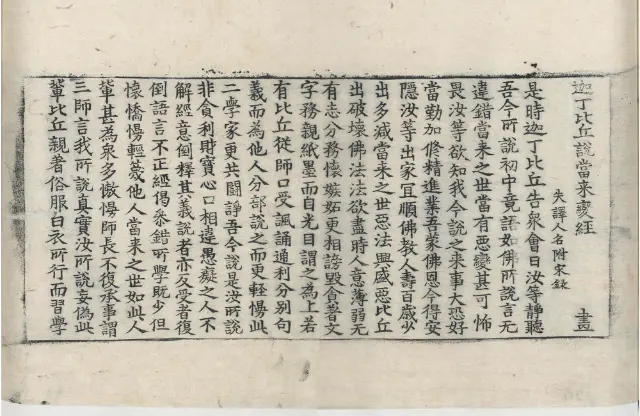 迦丁比丘說當來變經
失譯人名附宋錄
畫
是時迦丁比丘告衆會曰汝等靜聽
吾今所說初中竟語如佛所說言无
違錯當来之世當有惡變甚可怖
畏汝等欲知我今說之来事大恐好
當勤加修精進業吾蒙佛恩今得安
隱汝等出家冝順佛教人壽百歲少
出多減當来之世惡法興盛惡比丘
出破壞佛法法欲盡時人意薄弱无
有志分務懷嫉妬更相謗毀貪著文
字務親紙墨而自光目謂之為上若
有比丘從師口受諷誦通利分別句
義而為他人分部說之而更輕慢此
二學家更共鬪諍吾今說是汝所說
非貪利財寳心口相違愚癡之人不
解經意倒釋其義說者亦反受者復
倒語言不正經偈悉錯所學既少但
懷憍慢輕蔑他人當来之世如此人
輩甚為衆多慠慢師長不復承事謂
三師言我所說真實汝所說妄偽此
輩比丘親著俗服白衣所行而習學